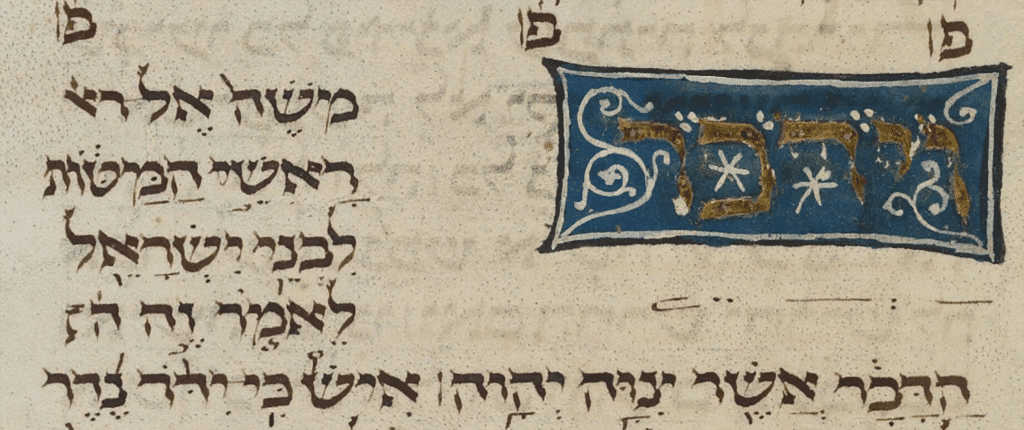 פ פ פ
וידבר
משה אל רא
ראשי המטות
לבני ישראל
לאמר זה הד
הדבר אשר צוה יהוה איש כי ידר נדר